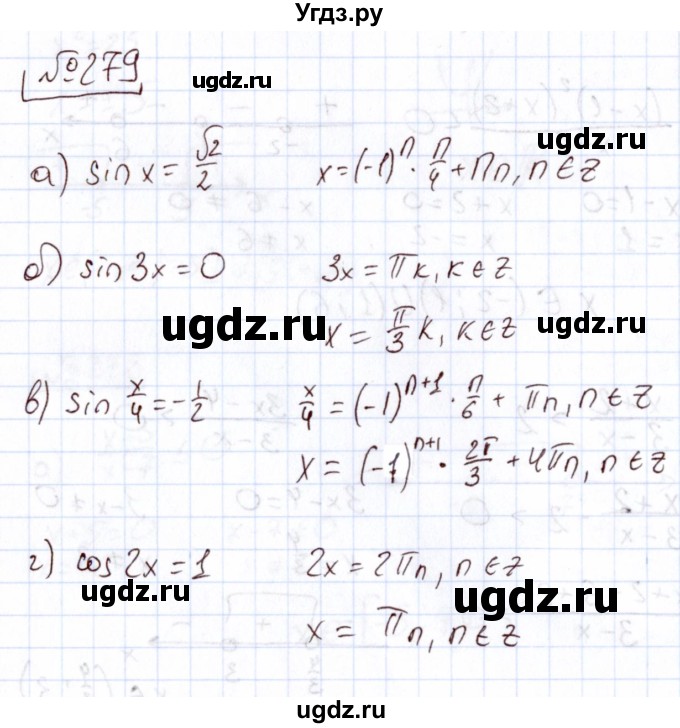 Угдз.ру
№279
ugdz.ru
ugdz.ru
а) sin x = √2/2 x = (-1)^n · π/4 + πn, n ∈ Z
б) sin 3x = 0 3x = πk, k ∈ Z
ugdz.ru
ugdz.ru
x = π/3 k, k ∈ Z
в) sin x/4 = -1/2 x/4 = (-1)^(n+1) · π/6 + πn, n ∈ Z
x = (-1)^(n+1) · 2π/3 + 4πn, n ∈ Z
г) cos 2x = 1 2x = 2πn, n ∈ Z
ugdz.ru
ugdz.ru
x = πn, n ∈ Z
ugdz.ru